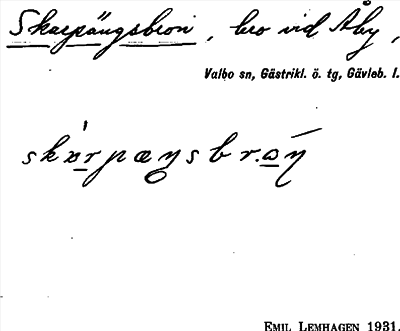 Skarpängsbron, bro vid Åby,
Valbo sn, Gästrikl. ö. tg, Gävleb. l.
skàrpæŋsbr.ɷ́n
EMIL LEMHAGEN 1931.